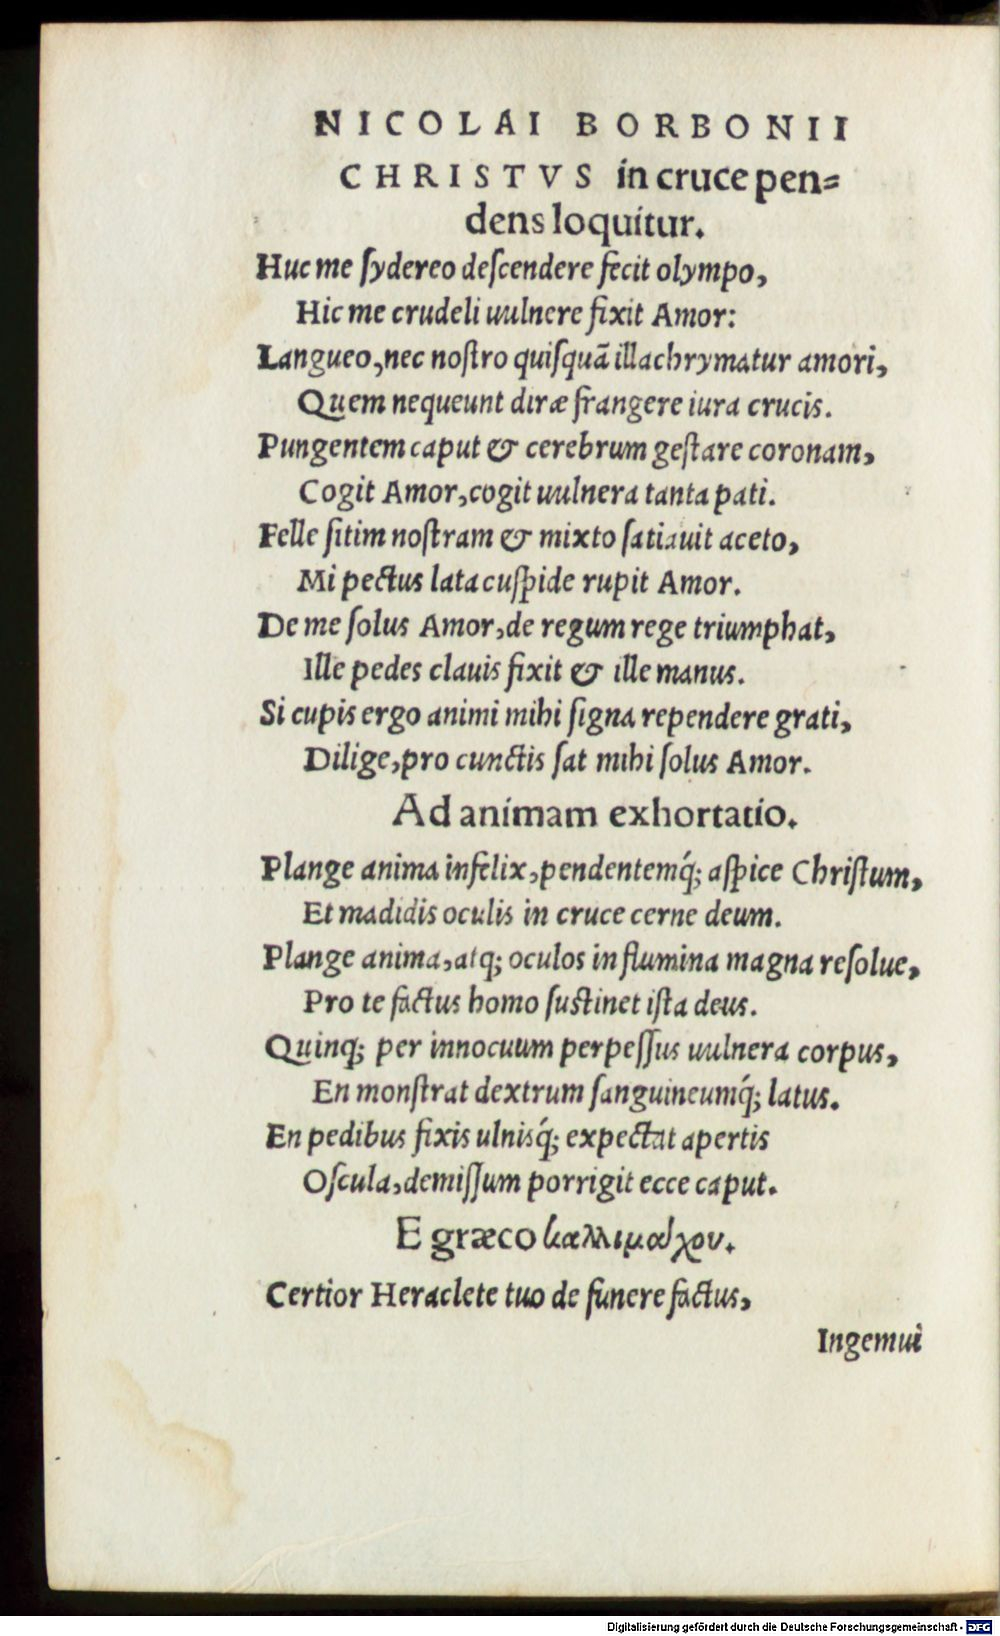 NICOLAI BORBONII
CHRISTVS in cruce pen=
dens loquitur.
Huc me ſydereo deſcendere fecit olympo,
Hic me crudeli uulnere fixit Amor:
Langueo, nec noſtro quiſquã illachrymatur amori,
Quem nequeunt diræ frangere iura crucis.
Pungentem caput & cerebrum geſtare coronam,
Cogit Amor, cogit uulnera tanta pati.
Felle ſitim noſtram & mixto ſatiauit aceto,
Mi pectus lata cuſpide rupit Amor.
De me ſolus Amor, de regum rege triumphat,
Ille pedes clauis fixit & ille manus.
Si cupis ergo animi mihi ſigna rependere grati,
Dilige, pro cunctis ſat mihi ſolus Amor.
Ad animam exhortatio.
Plange anima infelix, pendentemq́; aſpice Chriſtum,
Et madidis oculis in cruce cerne deum.
Plange anima, atq; oculos in flumina magna reſolue,
Pro te factus homo ſuſtinet iſta deus.
Quinq; per innocuum perpeſſus uulnera corpus,
En monſtrat dextrum ſanguineumq́; latus.
En pedibus fixis ulnisq́; expectat apertis
Oſcula, demiſſum porrigit ecce caput.
E græco καλλιμάχου.
Certior Heraclete tuo de funere factus,
Ingemui
Digitalisierung gefördert durch die Deutsche Forschungsgemeinschaft - DFG